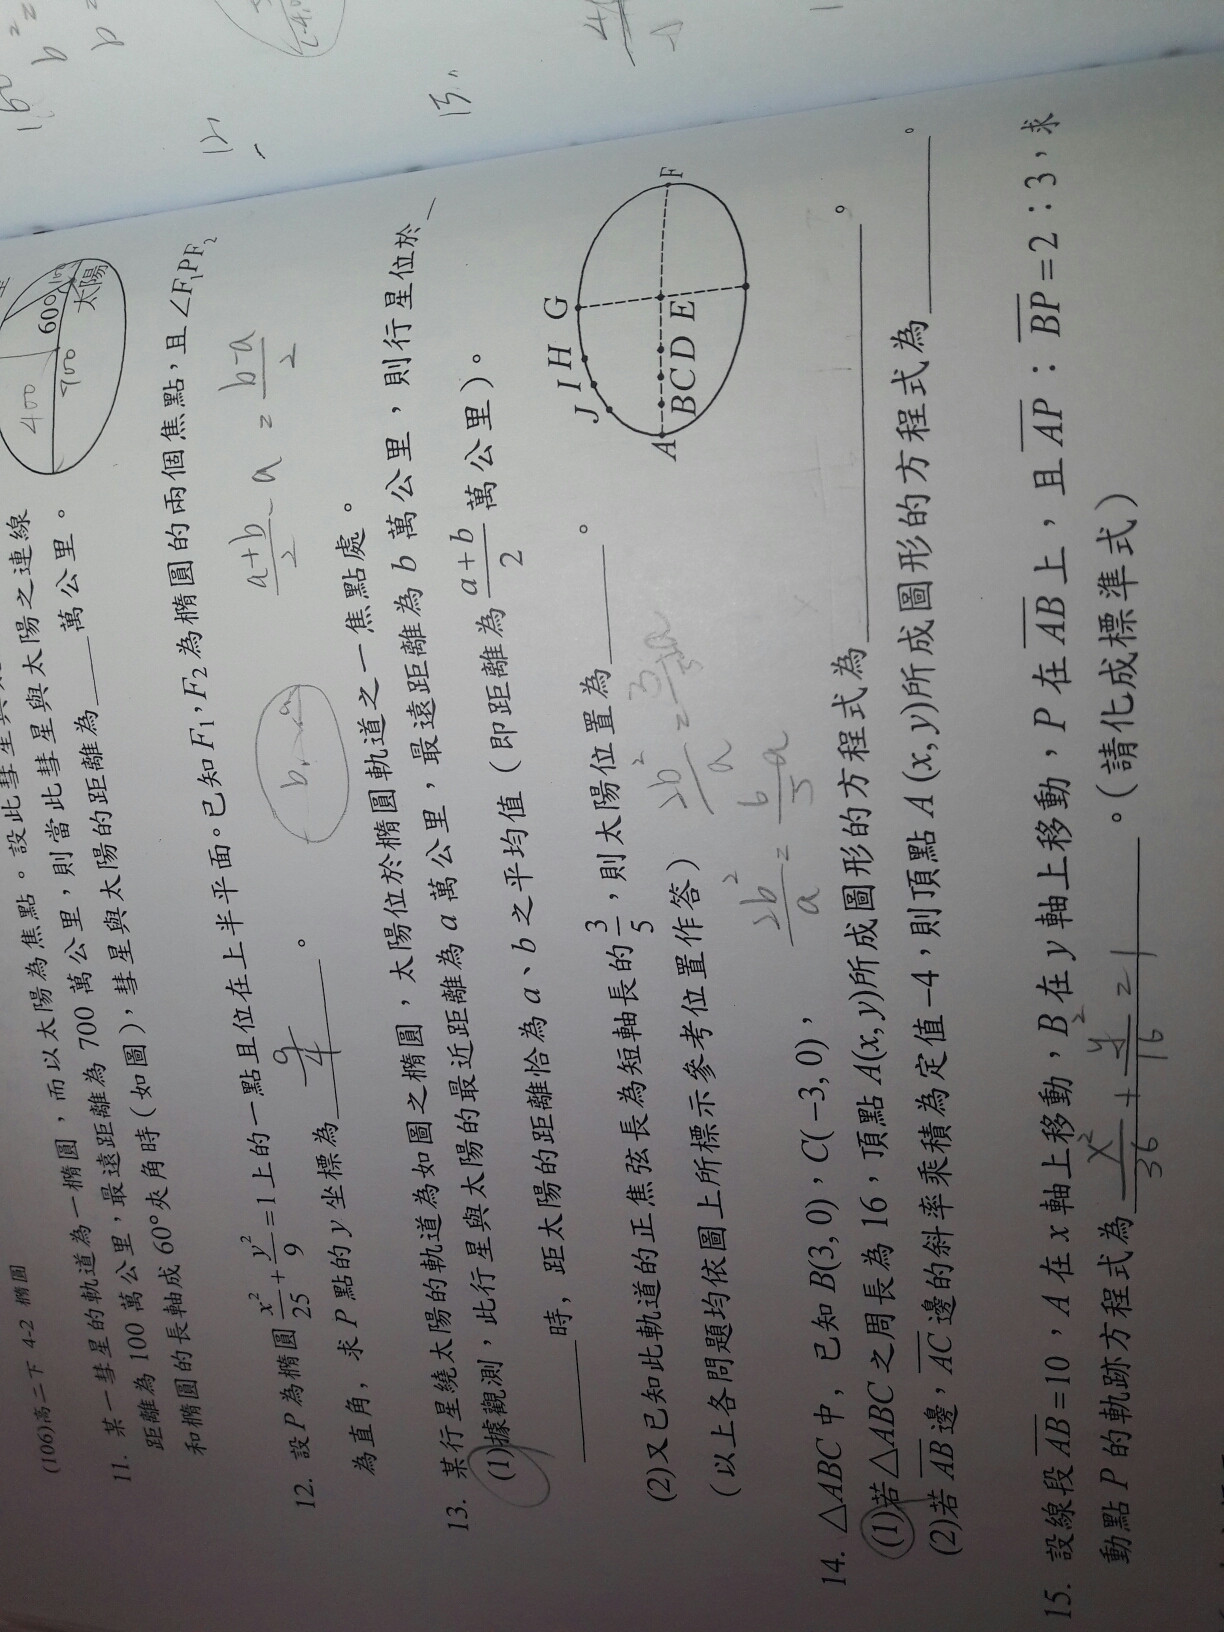 (106)高二下 4-2 橢圓
11. 某一彗星的軌道為一橢圓，而以太陽為焦點。設此彗星與太
距離為 100 萬公里，最遠距離為 700 萬公里，則當此彗星與太陽之連線
和橢圓的長軸成 60°夾角時（如圖），彗星與太陽的距離為____萬公里。
400
700
60°
100
太陽
12. 設 P 為橢圓 x²/25 + y²/9 = 1 上的一點且位在上半平面。已知 F₁，F₂ 為橢圓的兩個焦點，且 ∠F₁PF₂
為直角，求 P 點的 y 坐標為 9/4 。
(a+b)/2 - a = (b-a)/2
13. 某行星繞太陽的軌道為如圖之橢圓，太陽位於橢圓軌道之一焦點處。
(1)據觀測，此行星與太陽的最近距離為 a 萬公里，最遠距離為 b 萬公里，則行星位於
____時，距太陽的距離恰為 a、b 之平均值（即距離為 (a+b)/2 萬公里）。
(2)又已知此軌道的正焦弦長為短軸長的 3/5，則太陽位置為____。
（以上各問題均依圖上所標示參考位置作答）
J I H G
A B C D E F
2b²/a =
2b²/a = 6/5 a
14. △ABC 中，已知 B(3, 0)，C(−3, 0)，
(1)若△ABC 之周長為 16，頂點 A(x, y)所成圖形的方程式為____。
(2)若 AB 邊，AC 邊的斜率乘積為定值 −4，則頂點 A(x, y)所成圖形的方程式為____。
15. 設線段 AB = 10，A 在 x 軸上移動，B 在 y 軸上移動，P 在 AB 上，且 AP：BP = 2：3，求
動點 P 的軌跡方程式為 x²/36 + y²/16 = 1 。（請化成標準式）
12.
13.